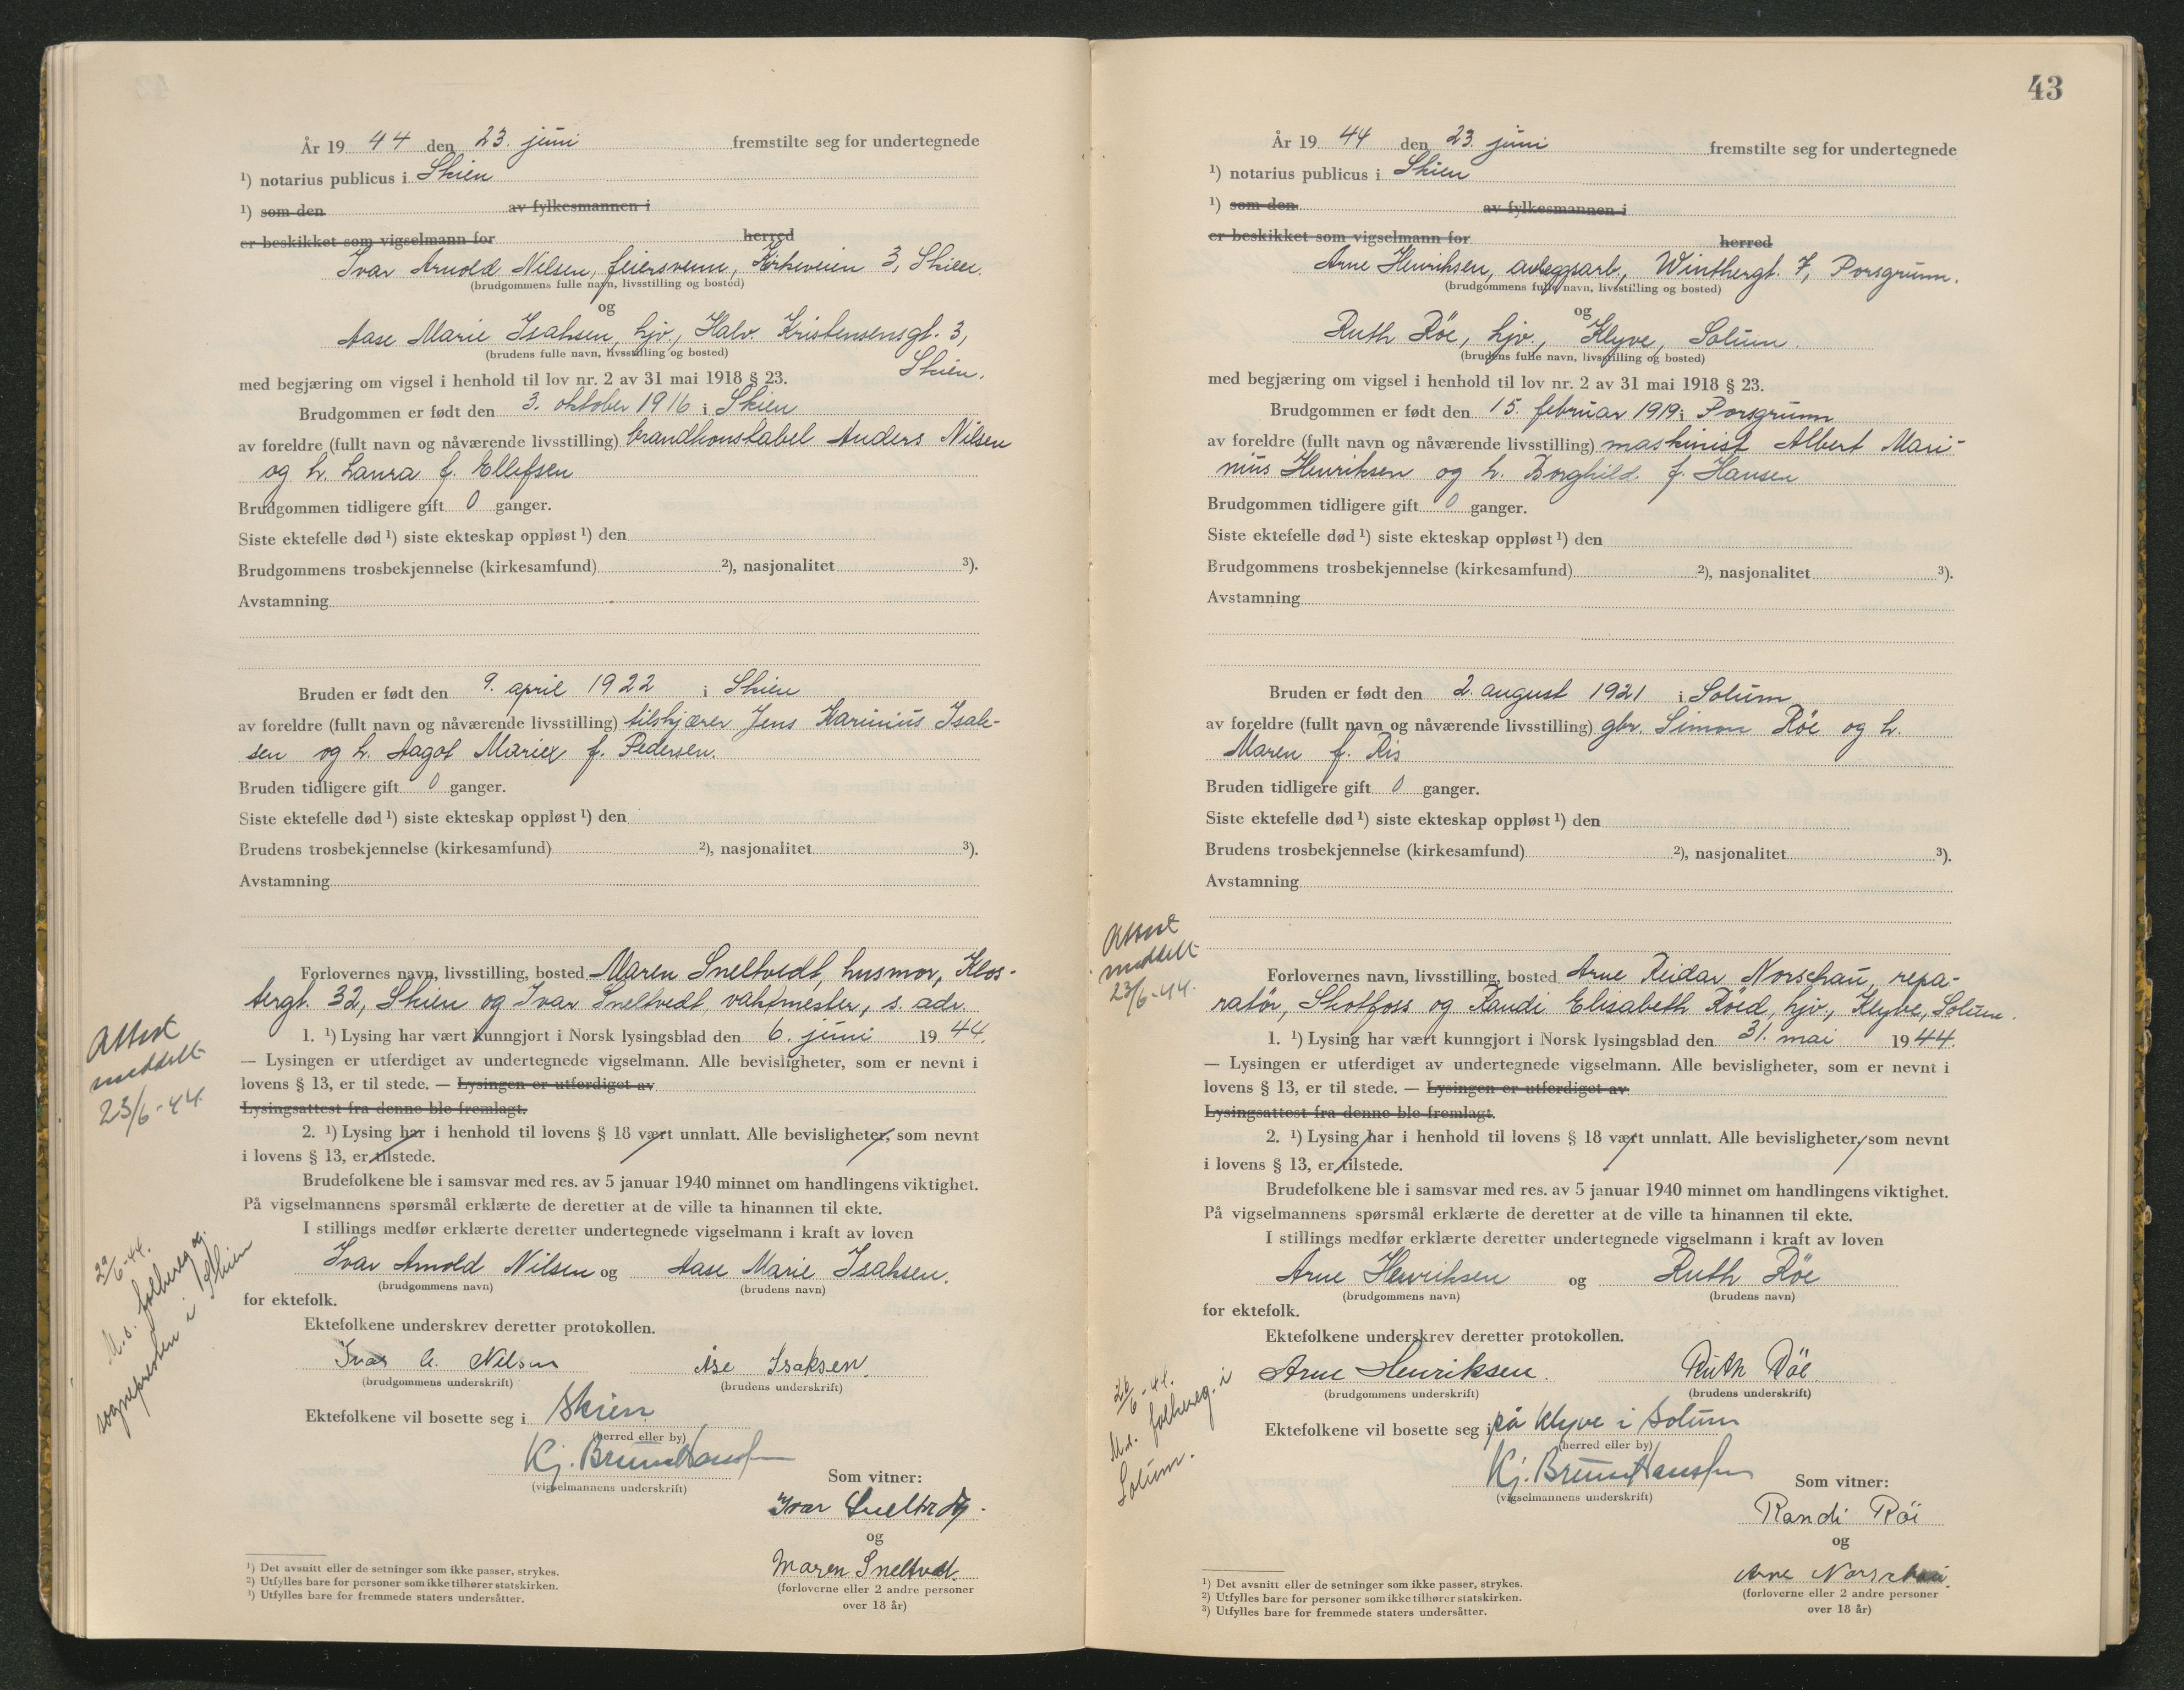 År 19 44 den 23. juni fremstilte seg for undertegnede
¹) notarius publicus i Skien
¹) som den av fylkesmannen i
er beskikket som vigselmann for herred
Ivar Arnold Nilsen, feiersvenn, Kirkeveien 3, Skien.
(brudgommens fulle navn, livsstilling og bosted)
og
Aase Marie Isaksen, hjv., Halv. Kristensensgt. 3,
(brudens fulle navn, livsstilling og bosted)
Skien.
med begjæring om vigsel i henhold til lov nr. 2 av 31 mai 1918 § 23.
Brudgommen er født den 3. oktober 1916 i Skien
av foreldre (fullt navn og nåværende livsstilling) brandkonstabel Anders Nilsen
og h. Laura f. Ellefsen
Brudgommen tidligere gift 0 ganger.
Siste ektefelle død ¹) siste ekteskap oppløst ¹) den
Brudgommens trosbekjennelse (kirkesamfund) ²), nasjonalitet ³).
Avstamning
Bruden er født den 9. april 1922 i Skien
av foreldre (fullt navn og nåværende livsstilling) tilskjærer Jens Karinius Isak-
sen og h. Aagot Marie f. Pedersen.
Bruden tidligere gift 0 ganger.
Siste ektefelle død ¹) siste ekteskap oppløst ¹) den
Brudens trosbekjennelse (kirkesamfund) ²), nasjonalitet ³).
Avstamning
Forlovernes navn, livsstilling, bosted Maren Sneltvedt, husmor, Klos-
tergt. 32, Skien og Ivar Sneltvedt, vaktmester, s. adr.
1. ¹) Lysing har vært kunngjort i Norsk lysingsblad den 6. juni 19 44.
— Lysingen er utferdiget av undertegnede vigselmann. Alle bevisligheter, som er nevnt i
lovens § 13, er til stede. — Lysingen er utferdiget av
Lysingsattest fra denne ble fremlagt.
2. ¹) Lysing har i henhold til lovens § 18 vært unnlatt. Alle bevisligheter, som nevnt
i lovens § 13, er tilstede.
Brudefolkene ble i samsvar med res. av 5 januar 1940 minnet om handlingens viktighet.
På vigselmannens spørsmål erklærte de deretter at de ville ta hinannen til ekte.
I stillings medfør erklærte deretter undertegnede vigselmann i kraft av loven
Ivar Arnold Nilsen og Aase Marie Isaksen.
(brudgommens navn) (brudens navn)
for ektefolk.
Ektefolkene underskrev deretter protokollen.
Ivar A. Nilsen Åse Isaksen.
(brudgommens underskrift) (brudens underskrift)
Ektefolkene vil bosette seg i Skien
(herred eller by)
Kj. Bruun Hansen
(vigselmannens underskrift)
Som vitner:
Ivar Sneltvedt.
og
Maren Sneltvedt.
(forloverne eller 2 andre personer
over 18 år)
¹) Det avsnitt eller de setninger som ikke passer, strykes.
²) Utfylles bare for personer som ikke tilhører statskirken.
³) Utfylles bare for fremmede staters undersåtter.
Attest
meddelt
23/6-44.
M.s. folkereg. og
sognepresten i Skien
43
År 19 44 den 23. juni fremstilte seg for undertegnede
¹) notarius publicus i Skien
¹) som den av fylkesmannen i
er beskikket som vigselmann for herred
Arne Henriksen, anleggsarb., Winthergt. 7, Porsgrunn.
(brudgommens fulle navn, livsstilling og bosted)
og
Ruth Röe, hjv., Klyve, Solum.
(brudens fulle navn, livsstilling og bosted)
med begjæring om vigsel i henhold til lov nr. 2 av 31 mai 1918 § 23.
Brudgommen er født den 15. februar 1919 i Porsgrunn
av foreldre (fullt navn og nåværende livsstilling) maskinist Albert Mari-
nius Henriksen og h. Borghild. f. Hansen
Brudgommen tidligere gift 0 ganger.
Siste ektefelle død ¹) siste ekteskap oppløst ¹) den
Brudgommens trosbekjennelse (kirkesamfund) ²), nasjonalitet ³).
Avstamning
Bruden er født den 2. august 1921 i Solum
av foreldre (fullt navn og nåværende livsstilling) gbr. Simon Röe og h.
Maren f. Ris
Bruden tidligere gift 0 ganger.
Siste ektefelle død ¹) siste ekteskap oppløst ¹) den
Brudens trosbekjennelse (kirkesamfund) ²), nasjonalitet ³).
Avstamning
Forlovernes navn, livsstilling, bosted Arne Reidar Norschau, repa-
ratör, Skotfoss og Randi Elisabeth Röed, hjv., Klyve, Solum.
1. ¹) Lysing har vært kunngjort i Norsk lysingsblad den 31. mai 19 44.
— Lysingen er utferdiget av undertegnede vigselmann. Alle bevisligheter, som er nevnt i
lovens § 13, er til stede. — Lysingen er utferdiget av
Lysingsattest fra denne ble fremlagt.
2. ¹) Lysing har i henhold til lovens § 18 vært unnlatt. Alle bevisligheter, som nevnt
i lovens § 13, er tilstede.
Brudefolkene ble i samsvar med res. av 5 januar 1940 minnet om handlingens viktighet.
På vigselmannens spørsmål erklærte de deretter at de ville ta hinannen til ekte.
I stillings medfør erklærte deretter undertegnede vigselmann i kraft av loven
Arne Henriksen og Ruth Röe
(brudgommens navn) (brudens navn)
for ektefolk.
Ektefolkene underskrev deretter protokollen.
Arne Henriksen. Ruth Röe
(brudgommens underskrift) (brudens underskrift)
Ektefolkene vil bosette seg i på Klyve i Solum
(herred eller by)
Kj. Bruun Hansen
(vigselmannens underskrift)
Som vitner:
Randi Röi
og
Arne Norschau.
(forloverne eller 2 andre personer
over 18 år)
¹) Det avsnitt eller de setninger som ikke passer, strykes.
²) Utfylles bare for personer som ikke tilhører statskirken.
³) Utfylles bare for fremmede staters undersåtter.
Attest
meddelt
23/6-44.
26/6-44.
M.s. folkereg. i
Solum.